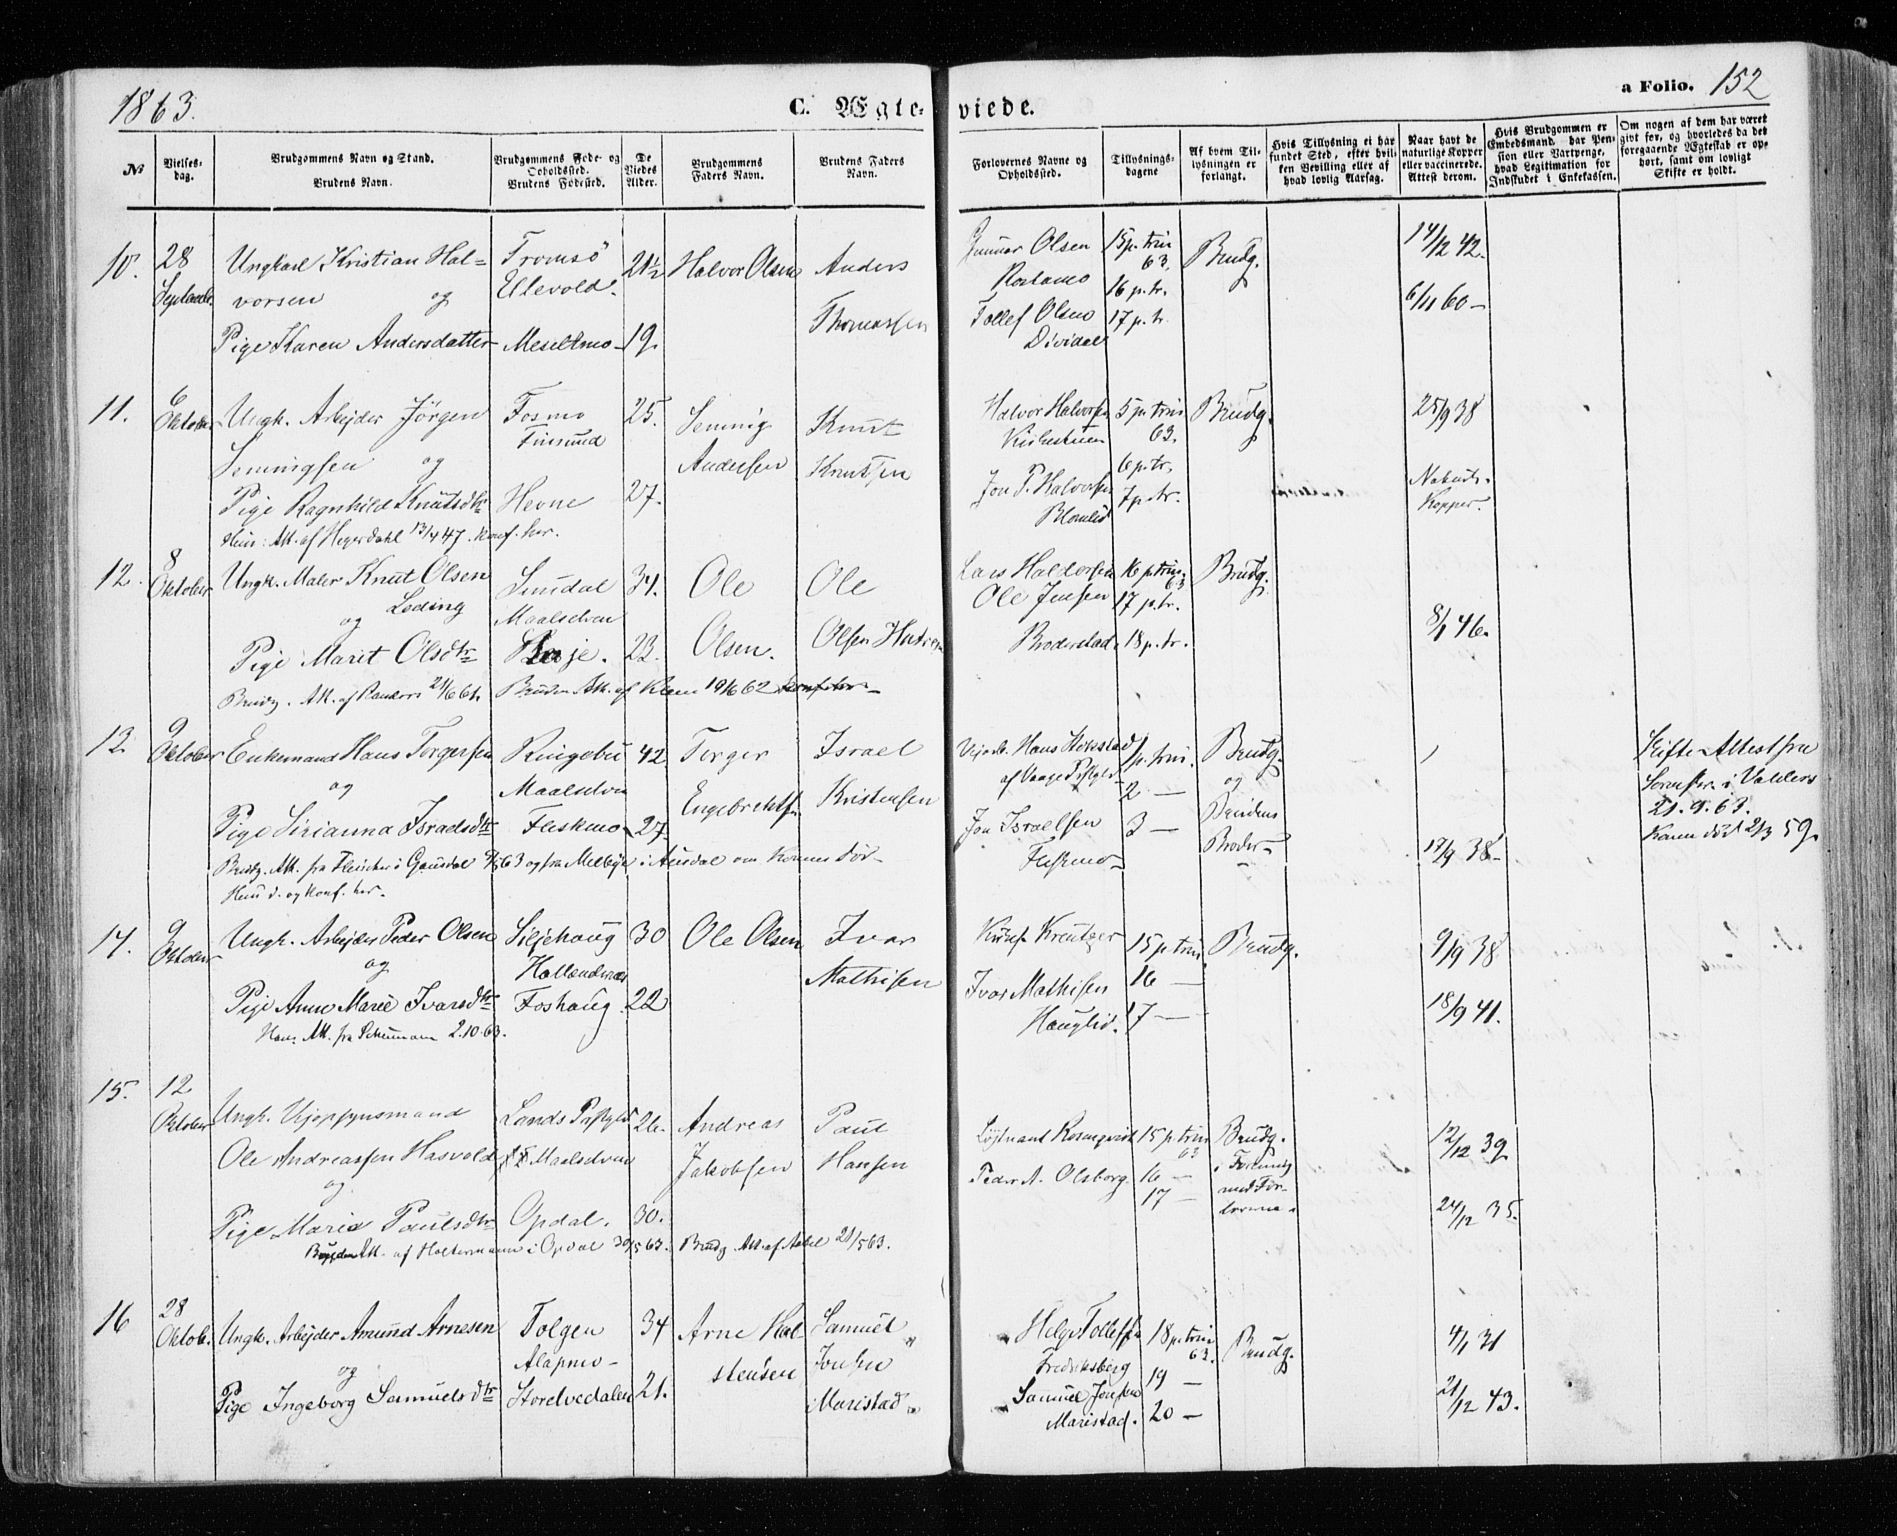 1863.
C. Ægteviede.
a Folio. 152
No
Vielsesdag.
Brudgommens Navn og Stand.
Brudens Navn.
Brudgommens Føde- og Opholdssted.
Brudens Fødested.
De Viedes Alder.
Brudgommens Faders Navn.
Brudens Faders Navn.
Forlovernes Navne og Opholdssted.
Tillysningsdagene
Af hvem Tillysningen er forlangt.
Hvis Tillysning ei har fundet Sted, efter hvilken Bevilling eller af hvad lovlig Aarsag.
Naar havt de naturlige Kopper eller vaccinerede. Attest derom.
Hvis Brudgommen er Embedsmand, har Pension eller Vartpenge, hvad Legitimation for Indskudet i Enkekassen.
Om nogen af dem har været givt før, og hvorledes da det foregaaende Ægteskab er ophørt, samt om lovligt Skifte er holdt.
10. 28 Ungkarl Kristian Hal= Tromsö 21½ Halvor Olsen Anders Gunnar Olsen 15 p. trin 63. Brudg. 14/12 42.
vorsen og Ulevold. Thomassen Rostamo 16 p. tr. 6/11 60 -
Pige Karen Andersdatter Meseltmo 19. Tollef Olsen 17 p. tr.
Dividal
11. 6 Oktober Ungk. Arbejder Jörgen Fosmo 25. Seming Knut Halvor Halvorsen 5 p. trin 63. Brudg. 25/9 38
og Finsund Andersen Knutsen Kirkestuen 6 p. tr.
Pige Ragnhild Knutsdtr Hevne 27. Jon P. Halvorsen 7 p. tr. Naturl. Kopper.
Blomlid
13/4 47. konf. her.
12. 8 Oktober Ungk. Maler Knut Olsen 34. Ole Ole Lars Haldorsen 16 p trin. 63 Brudg.
Loding Maalselven Ole Jensen 17 p. tr.
og Olsen. Olsen 18 p. tr. 8/1 46.
Pige Marit Olsdtr 23.
Brudg. Att. af 21/6 61. Bruden Att. af 19/6 62
13. 9 Oktober Enkemand Hans Torgersen Ringebu 42 Torger Israel 1 p. trin. Brudg. Skifte-Attest fra
og Maalselven Engebrektsen Kristensen af Vaage 2 — og Sorenskr. i Valders
Pige Sirianna Israelsdtr Fleskmo 27. Jon Israelsen 3 — Brudens 21. 9. 63.
Fleskmo Broder 17/9 38 - Konen död 2/3 59.
Brudg. Att. fra Fleischer i Gausdal 63 og fra
Hun d. og konf. her.
14. 9 Oktober Ungk. Arbejder Peder Olsen Siljehaug 30 Ole Olsen Ivar Kreutzer 15 p trin. Brudg. 9/9 38
og Mathisen Ivar Mathisen 16 —
Pige Anne Marie Ivarsdtr Foshaug. 22 Hauglid. 17 — 18/9 41.
Hans Att. fra 2.10.63.
15. 12 Oktober Ungk. Lands 26. Andreas Paul 15 p. trin 63 Brudg. 12/12 39
Ole Andreassen Hasvold Maalselven Jakobsen Hansen Peder A. Olsborg. 16 —
og 17 —
Pige Maria Paulsdtr Opdal. 30. 24/12 35.
Att. af Holtermann i Opdal 30/5 63. Brudg. Att af 21/5 63.
16 28 Oktob. Ungk. Arbejder Amund Arnesen Tolgen 34 Arne Hal- Samuel Helge Tollefsen 18 p. trin 63. Brudg. 4/1 31
og Alapmo - stensen Jonsen Fredriksberg 19 —
Pige Ingeborg Samuelsdtr Stordvedalen 21. Maristad Samuel Jonsen 21/12 43.
Maristad. 20 —